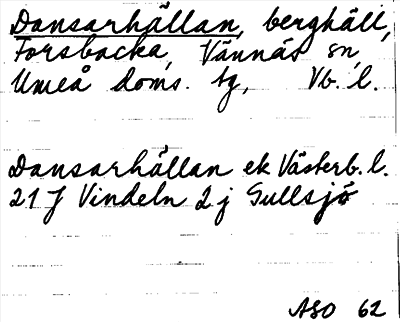 Dansarhällan, berghäll,
Forsbacka, Vännäs sn,
Umeå doms. tg, Vb. l.
Dansarhällan ek Västerb. l.
21 J Vindeln 2 j Gullsjö
ASO 62